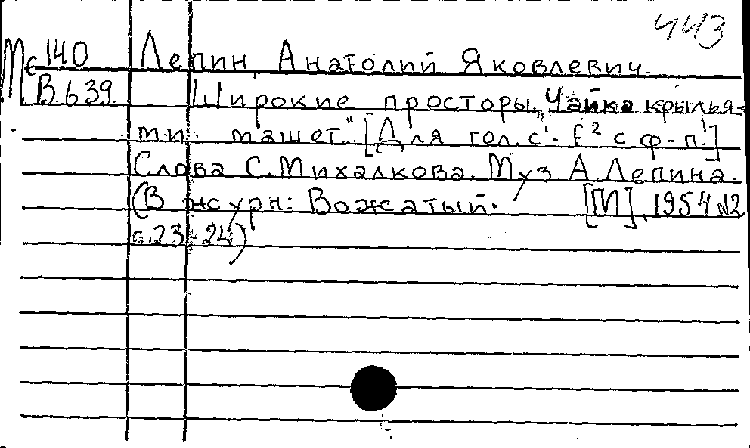 443
Мс 140 Лепин, Анатолий Яковлевич.
В 639 Широкие просторы. "Чайка крылья-
ми машет." [Для гол. с'- f² с ф-п']
Слова С. Михалкова. Муз А. Лепина.
(В журн: Вожатый. [М], 1954 №12
с. 23-24)